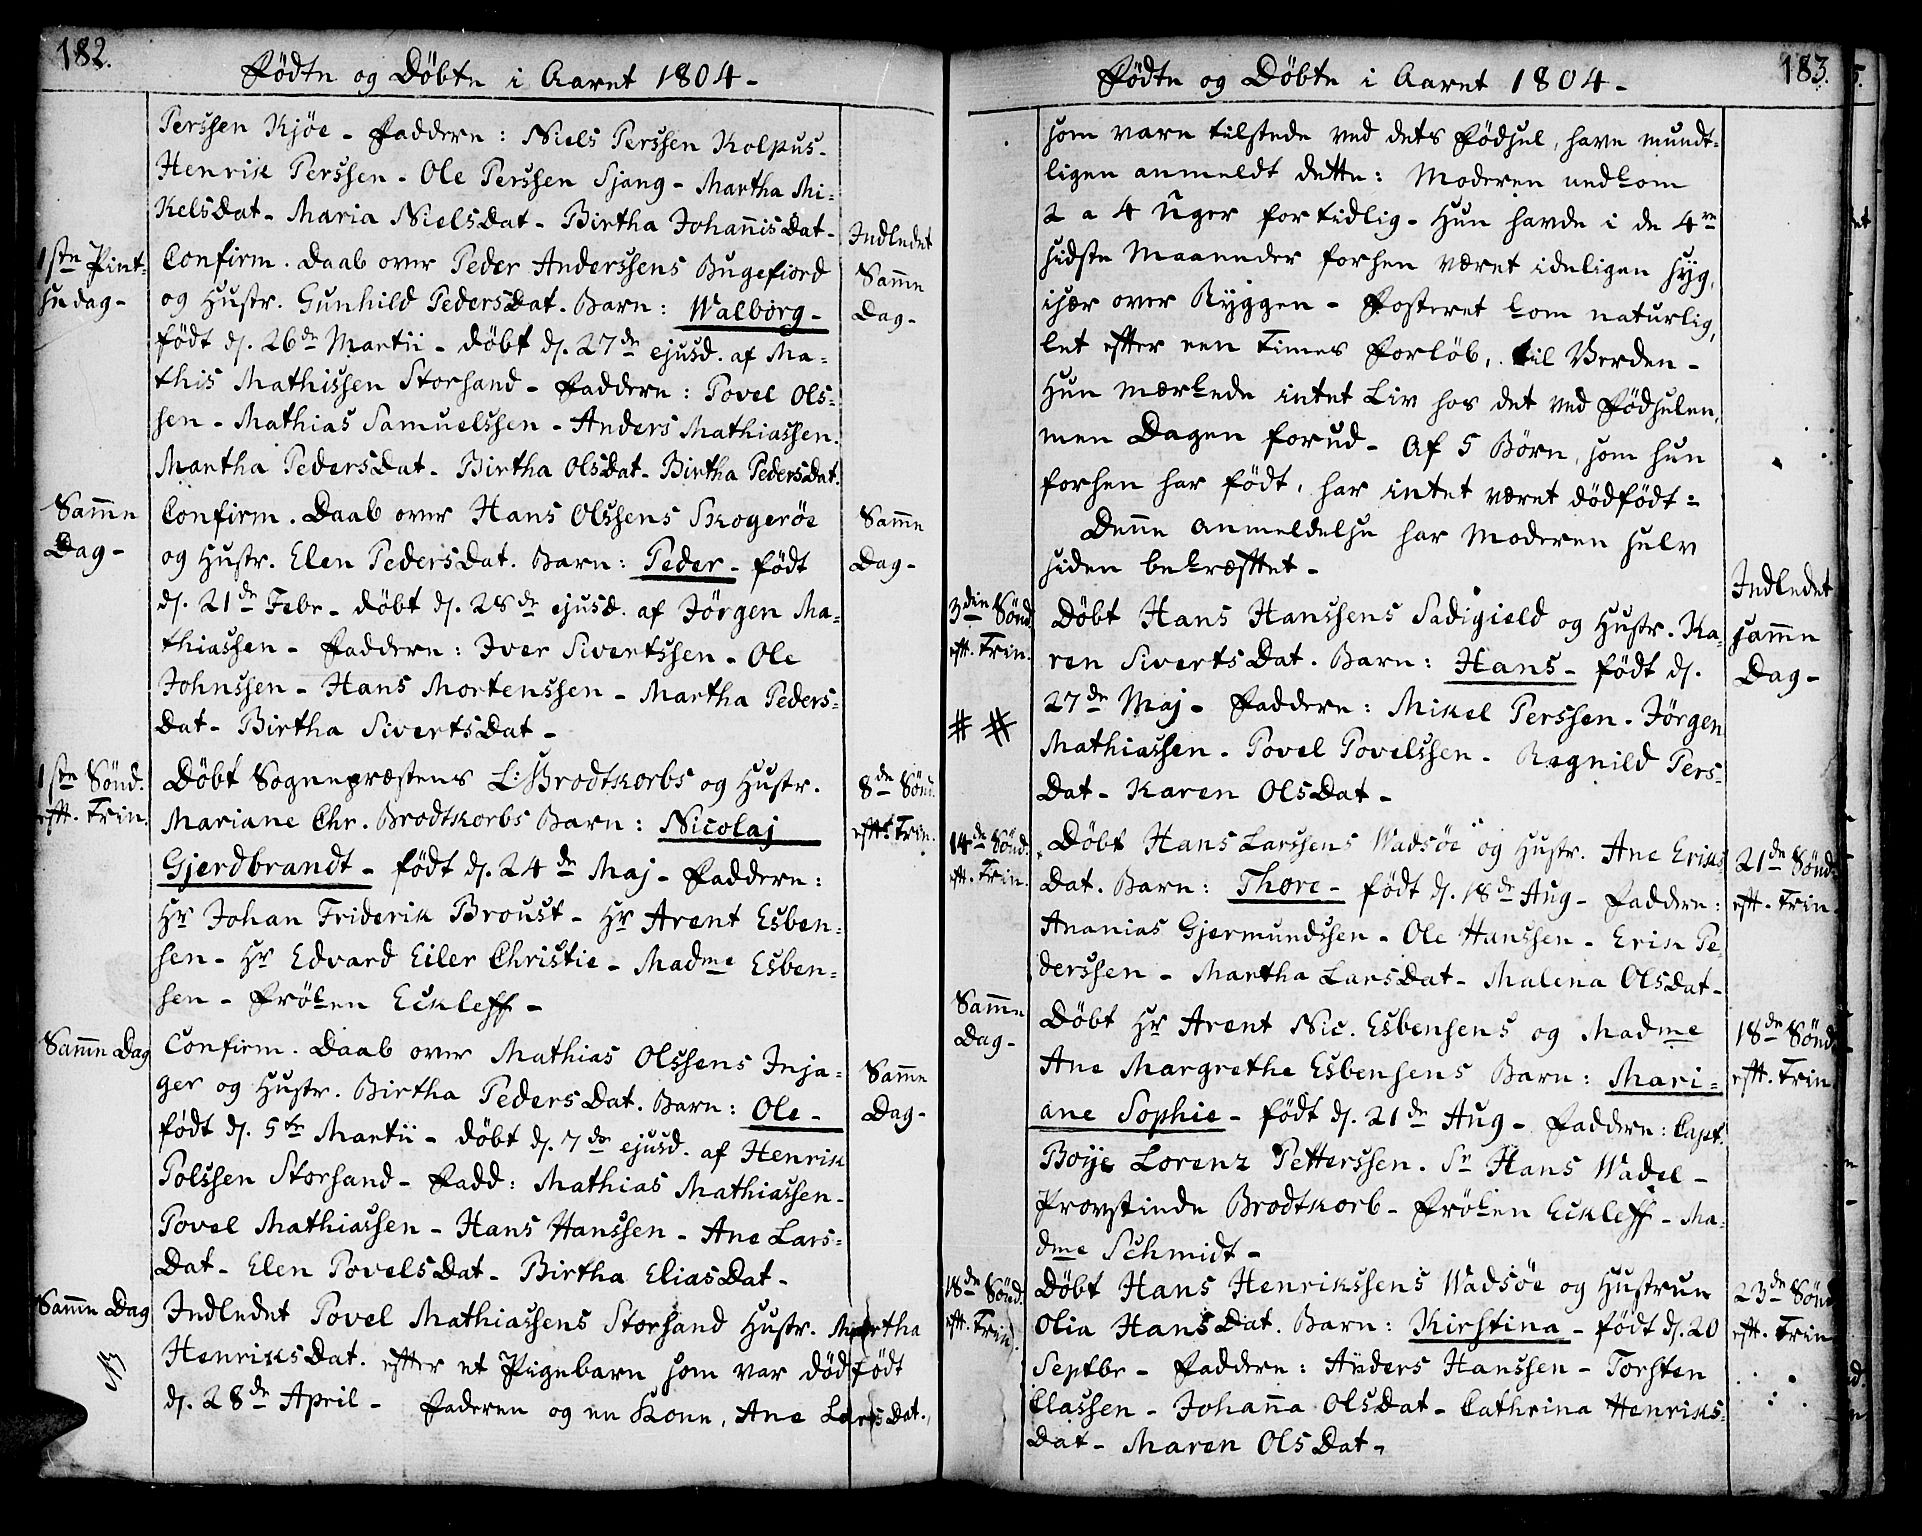 182.
Födte og Döbte i Aaret 1804 -
Perssen Kjöe - Faddere: Niels Perssen Kolpus-
Henrik Perssen - Ole Perssen Sjang - Martha Mi-
kelsDat - Maria NielsDat - Birtha JohañisDat -
Indledet
Sam̄e
Dag -
1ste Pint-
sedag -
Confirm. Daab over Peder Anderssens Bugefiord
og Hustr. Gunhild PedersDat. Barn: Walborg -
födt d. 26de Martii - döbt d. 27de ejusd. af Ma-
this Mathissen Storsand - Faddere: Povel Ols-
sen - Mathias Samuelssen - Anders Mathiassen.
Martha PedersDat - Birtha OlsDat - Birtha PedersDat.
Sam̄e
Dag -
Confirm. Daab over Hans Olssens Skogeröe
og Hustr. Elen PedersDat. Barn: Peder - födt
d. 21de Febr - döbt d. 28de ejusd. af Jörgen Ma-
thiassen - Faddere: Iver Sivertssen - Ole
Johnssen - Hans Mortenssen - Martha Peders-
Dat - Birtha SivertsDat -
Sam̄e
Dag -
1ste Sönd.
eft. Trin.
Döbt Sognepræstens L: Brodtkorbs og Hustr.
Mariane Chr. Brodtkorbs Barn: Nicolaj
Gjerdbrandt - födt d. 24de Maj - Faddere:
Hr Johan Friderik Broust - Hr Arent Esben-
sen - Hr Edvard Eiler Christie - Madme Esben-
sen - Fröken Eckleff -
8de Sönd.
eft. Trin.
Sam̄e Dag
Confirm. Daab over Mathias Olssens Inja-
ger og Hustr. Birtha PedersDat. Barn: Ole -
födt d. 5te Martii - döbt d. 7de ejusd. af Henrik
Polssen Storsand - Fadd: Mathias Mathiassen -
Povel Mathiassen - Hans Hanssen - Ane Lars-
Dat - Elen PovelsDat - Birtha EliasDat -
Sam̄e
Dag -
Sam̄e Dag
Indledet Povel Mathiassens Storsand Hustr. Martha
HenriksDat. efter et Pigebarn som var dödfödt
d. 28de April - Faderen og en Kone, Ane LarsDat.,
183.
Födte og Döbte i Aaret 1804 -
som vare tilstede ved dets Födsel, have mundt-
ligen anmeldt dette: Moderen nedkom
2 a 4 Uger for tidlig - Hun havde i de 4re
sidste Maaneder forhen været ideligen syg,
især over Ryggen - Fosteret kom naturlig,
let efter een Times Forlöb, til Verden -
Hun mærkede intet Liv hos det ved Födselen,
men Dagen forud - Af 5 Börn, som hun
forhen har födt, har intet været dödfödt -
Denne Anmeldelse har Moderen selv
siden bekræftet -
3die Sönd.
eft. Trin.
# #
Döbt Hans Hanssens Sadigield og Hustr. Ka-
ren SivertsDat. Barn: Hans - födt d.
27de Maj - Faddere: Mikel Perssen - Jörgen
Mathiassen - Povel Povelssen - Ragnild Pers-
Dat - Karen OlsDat -
Indledet
sam̄e
Dag -
14de Sönd.
eft. Trin.
Döbt Hans Larssens Wadsöe og Hustr. Ane Eriks
Dat. Barn: Thore - födt d. 18de Aug - Faddere:
Ananias Gjermundssen - Ole Hanssen - Erik Pe-
derssen - Martha LarsDat - Malena OlsDat -
21de Sönd.
eft. Trin.
Sam̄e
Dag -
Döbt Hr Arent Nic. Esbensens og Madme
Ane Margrethe Esbensens Barn: Mari-
ane Sophie - födt d. 21de Aug - Faddere: Capt.
Boije Lorenz Petterssen. Sr Hans Wadel -
Provstinde Brodtkorb - Fröken Eckleff - Ma-
dme Schmidt -
18de Sönd.
eft. Trin.
18de Sönd.
eft. Trin.
Döbt Hans Henrikssens Wadsöe og Hustrue
Olia HansDat. Barn: Kirstina - födt d. 20
Septbr - Faddere: Anders Hanssen - Torsten
Classen - Johañna OlsDat - Cathrina Henriks-
Dat - Maren OlsDat -
23de Sönd.
eft. Trin